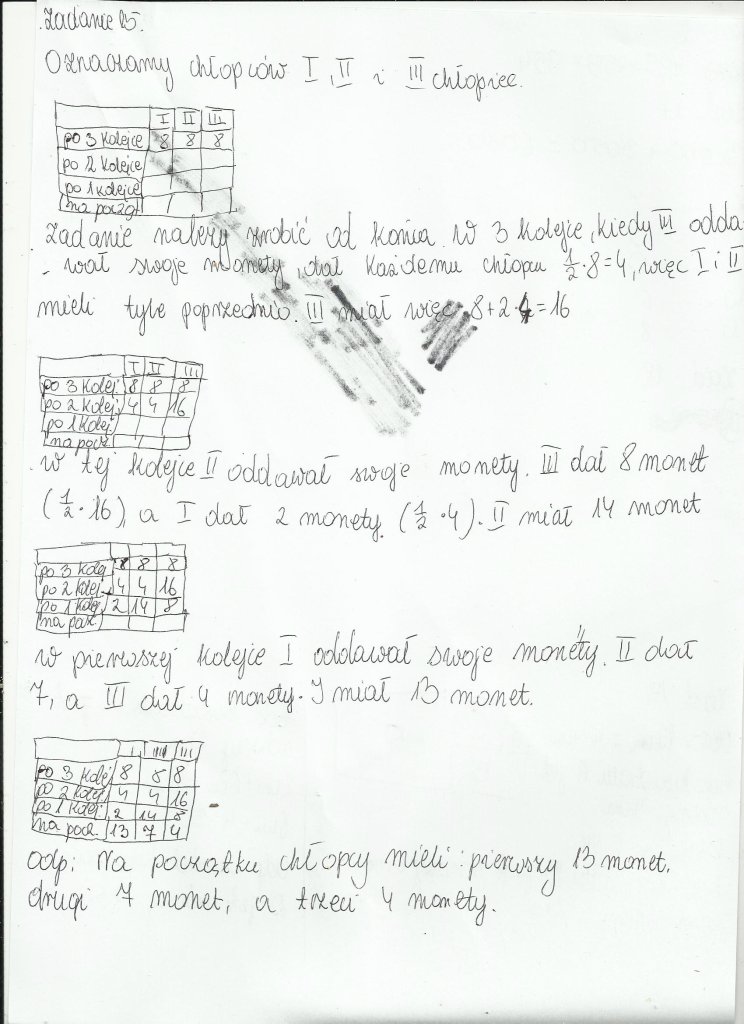 Zadanie 25.
Oznaczamy chłopców I, II i III chłopiec.
I II III
po 3 kolejce 8 8 8
po 2 kolejce
po 1 kolejce
na pocző
Zadanie należy zrobić od końca. W 3 kolejce, kiedy III odda
- wał swoje monety, dał każdemu chłopcu 1/2·8=4, więc I i II
mieli tyle poprzednio. III miał więc 8+2·4=16
I II III
po 3 kolej. 8 8 8
po 2 kolej. 4 4 16
po 1 kolej.
na pocz.
W tej kolejce II oddawał swoje monety. III dał 8 monet
(1/2·16), a I dał 2 monety. (1/2·4). II miał 14 monet
po 3 kolej. 8 8 8
po 2 kolej. 4 4 16
po 1 kolej. 2 14 8
na pocz.
W pierwszej kolejce I oddawał swoje monety. II dał
7, a III dał 4 monety. I miał 13 monet.
I III
po 3 kolej. 8 8 8
po 2 kolej. 4 4 16
po 1 kolej. 2 14 8
na pocz. 13 7 4
odp: Na początku chłopcy mieli: pierwszy 13 monet,
drugi 7 monet, a trzeci 4 monety.